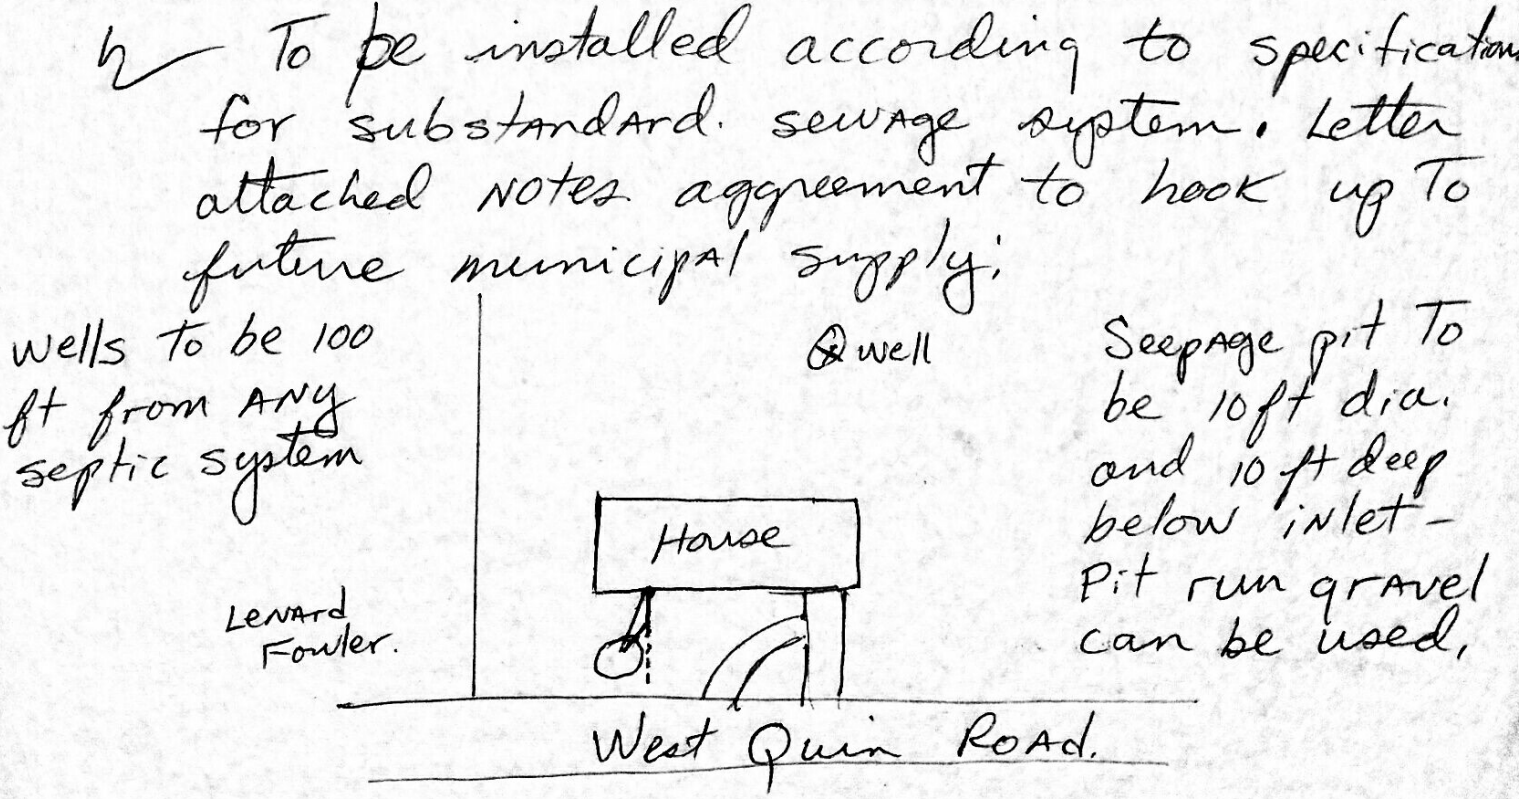 To be installed according to specifications
for substandard. sewage system. Letter
attached Notes aggreement to hook up To
future municipal supply;
wells to be 100
ft from ANY
septic system
well
Seepage pit To
be 10 ft dia.
and 10 ft deep
below inlet -
Pit run gravel
can be used,
House
Lenard
Fowler.
West Quin Road.